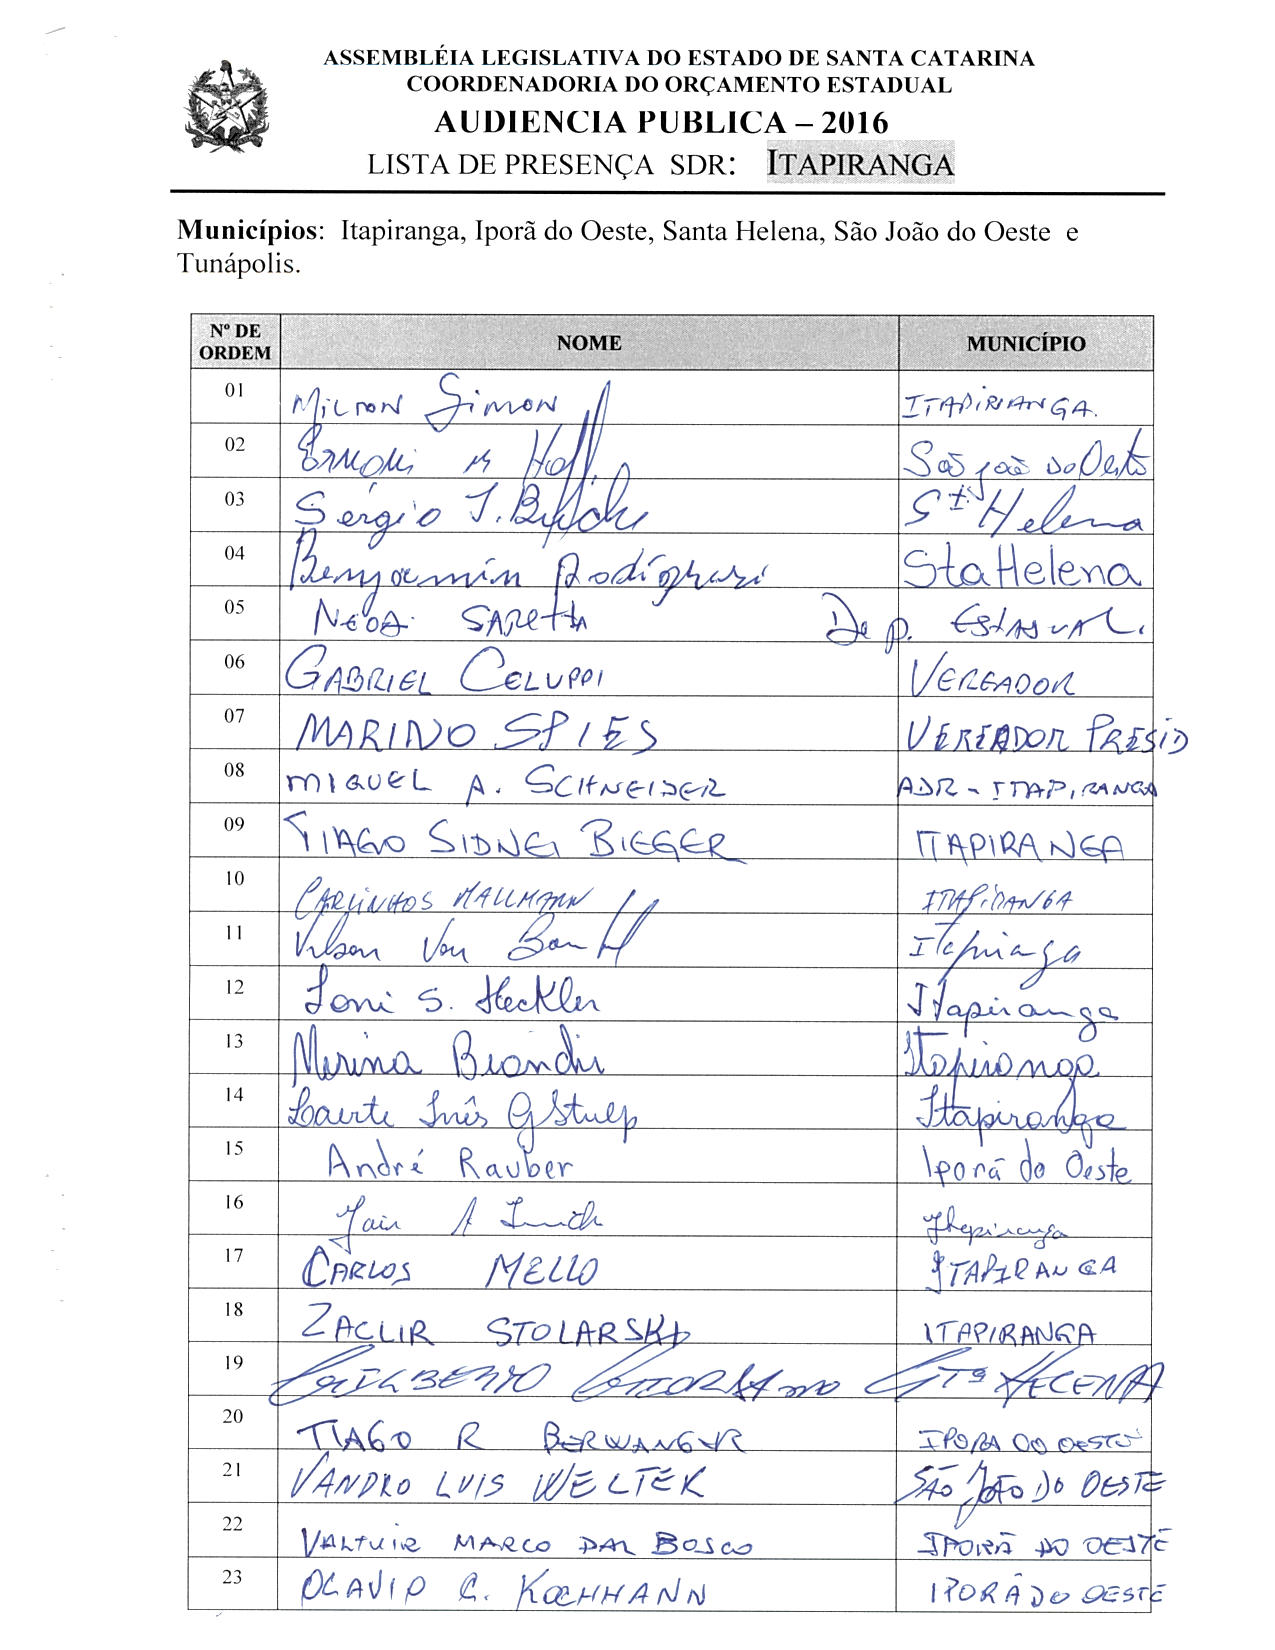 ASSEMBLÉIA LEGISLATIVA DO ESTADO DE SANTA CATARINA
COORDENADORIA DO ORÇAMENTO ESTADUAL
AUDIENCIA PUBLICA – 2016
LISTA DE PRESENÇA SDR: ITAPIRANGA
Municípios: Itapiranga, Iporã do Oeste, Santa Helena, São João do Oeste e
Tunápolis.
Nº DE ORDEM NOME MUNICÍPIO
01 MILTON SIMON ITAPIRANGA.
02 São João do Oeste
03 Sérgio J. Sta Helena
04 Benyamin Sta Helena
05 SARETTA Dep. ESTADUAL.
06 GABRIEL CELUPPI VEREADOR
07 MARINO SPIES VEREADOR PRESID
08 MIGUEL A. SCHNEIDER ADR - ITAPIRANGA
09 TIAGO SIDNEI BIEGER ITAPIRANGA
10 CARLINHOS MALLMANN ITAPIRANGA
11 Vilson Von Itapiranga
12 Loni S. Heckler Itapiranga
13 Marina Itapiranga
14 Laerte Inês G Stulp Itapiranga
15 André Rauber Iporã do Oeste
16 Jair A Itapiranga
17 CARLOS MELLO ITAPIRANGA
18 ZACLIR STOLARSKI ITAPIRANGA
19 GILBERTO Sta HELENA
20 TIAGO R BERWANGER IPORA DO OESTE
21 VANDRO LUIS WELTER SÃO JOÃO DO OESTE
22 VALTUIR MARCO DAL BOSCO IPORÃ DO OESTE
23 OLAVIO C. KOCHHANN IPORÃ DO OESTE